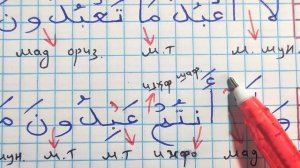 لَا أَعْبُدُ مَا تَعْبُدُونَ
мад ориз. м.т м. мун.
шаф.
أَنتُمْ عَٰبِدُونَ مَ
мун. м.т м.т ихфо мад